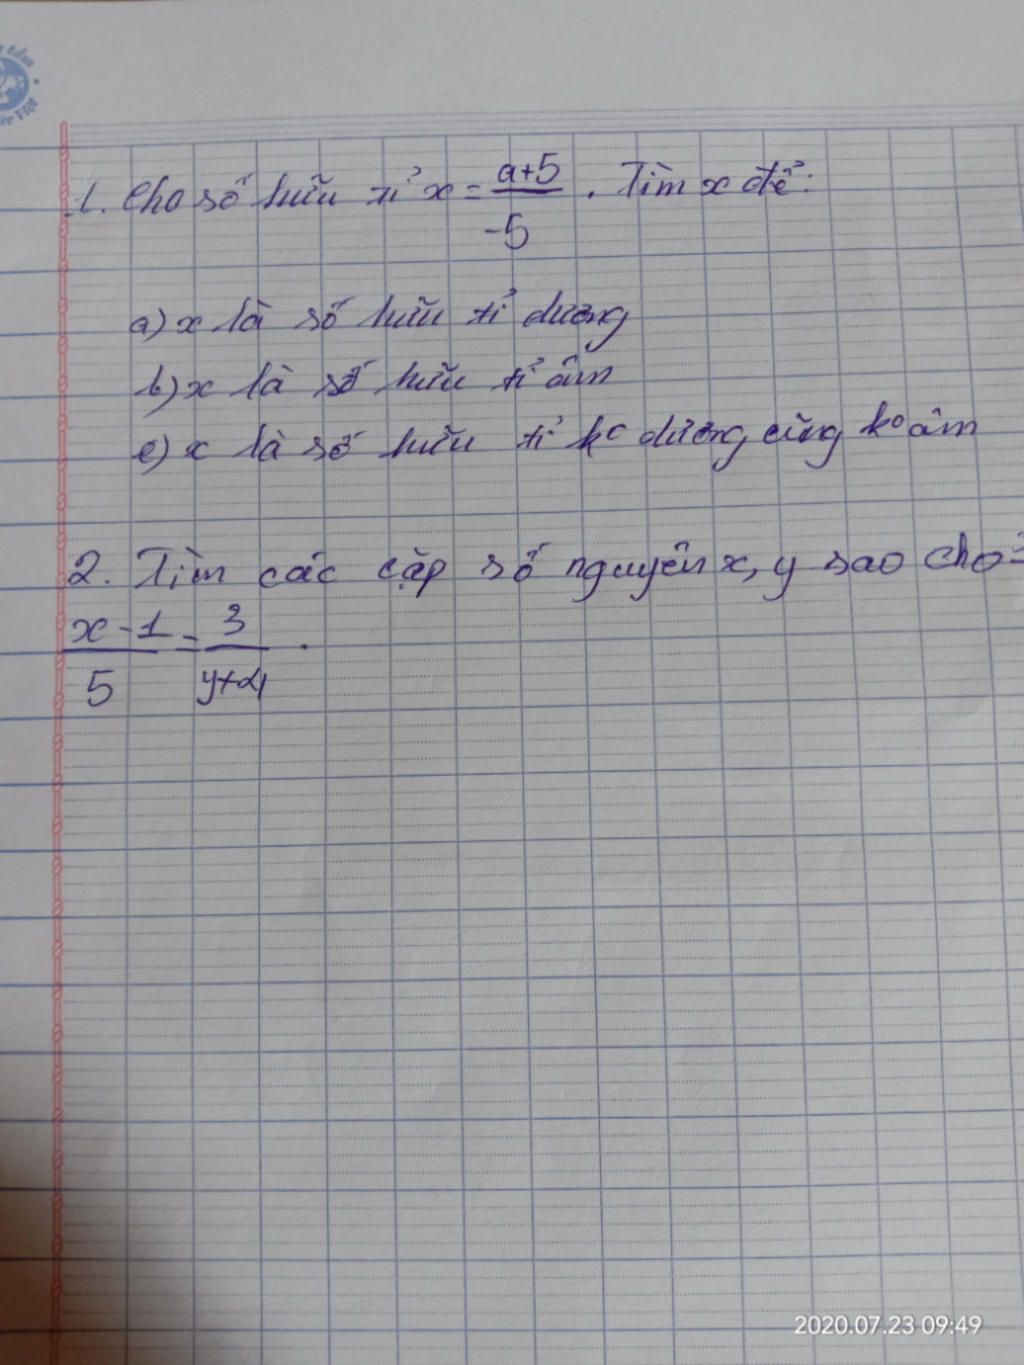 1. Cho số hữu tỉ x = a+5/-5 . Tìm x để:
a) x là số hữu tỉ dương
b) x là số hữu tỉ âm
c) x là số hữu tỉ ko dương cũng ko âm
2. Tìm các cặp số nguyên x, y sao cho:
x-1/5 = 3/y+4 .
2020.07.23 09:49